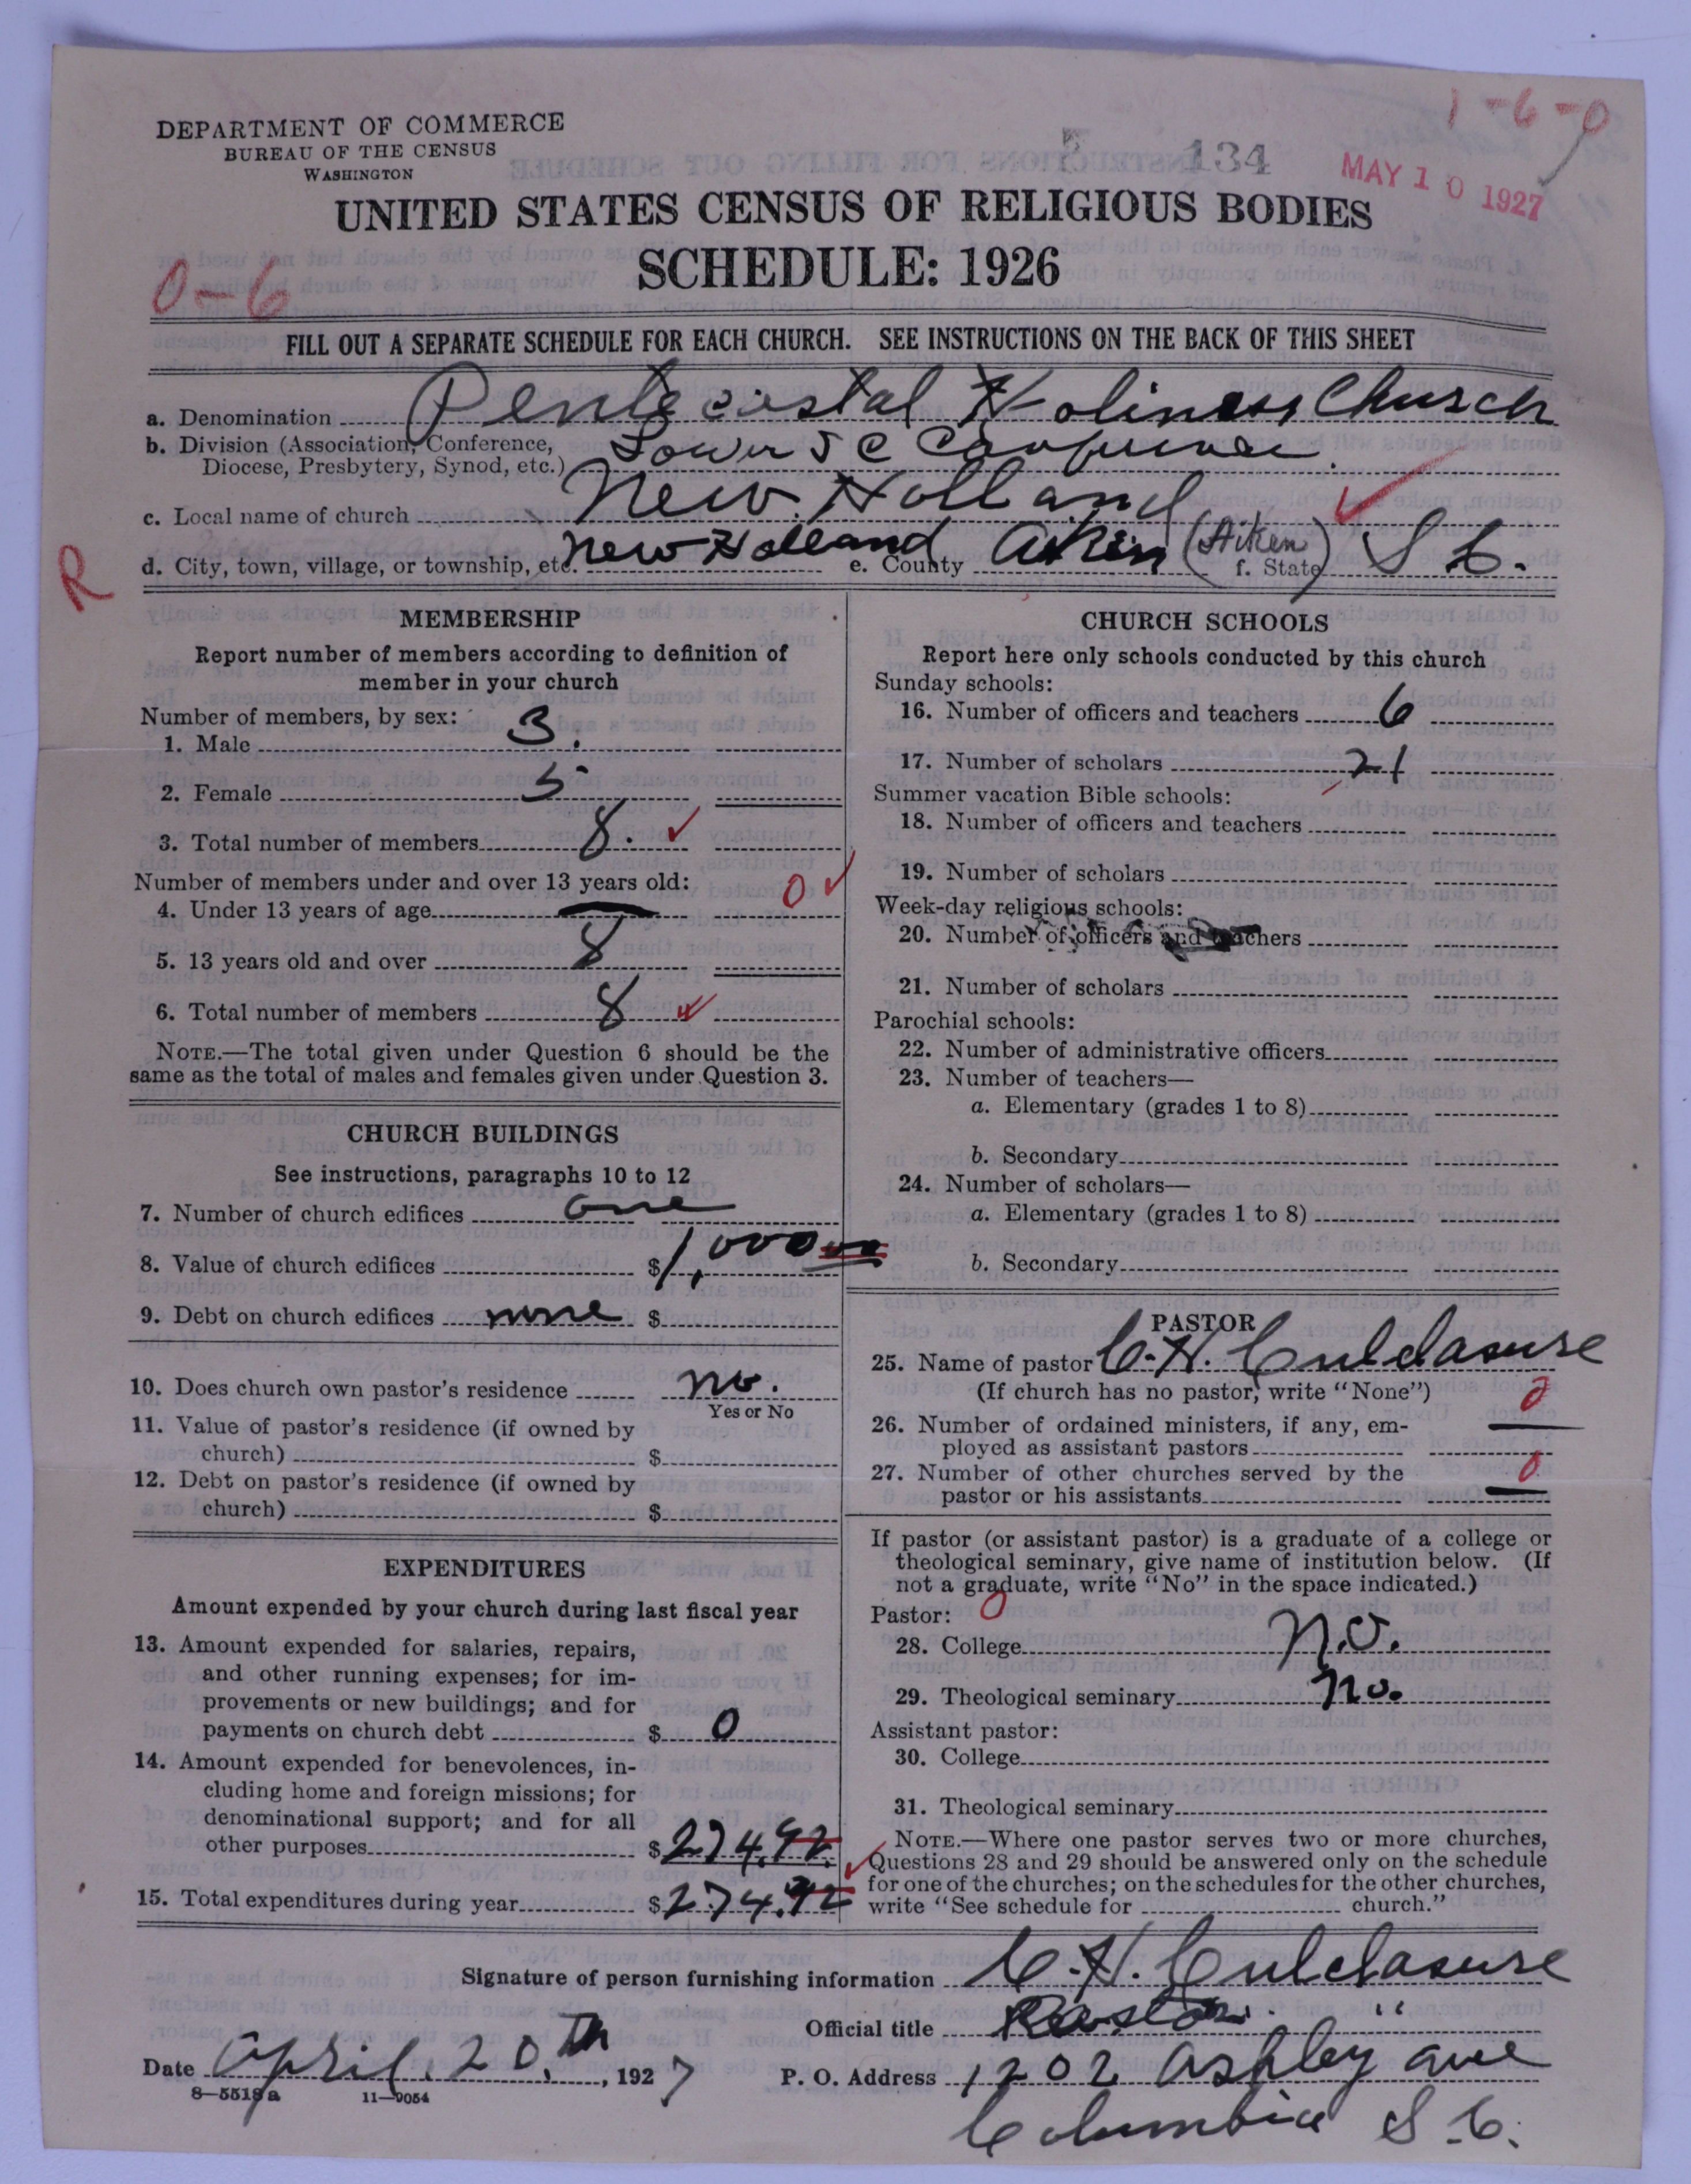 1-6-0
DEPARTMENT OF COMMERCE
BUREAU OF THE CENSUS
WASHINGTON
5 134
MAY 10 1927
UNITED STATES CENSUS OF RELIGIOUS BODIES
SCHEDULE: 1926
0-6
FILL OUT A SEPARATE SCHEDULE FOR EACH CHURCH. SEE INSTRUCTIONS ON THE BACK OF THIS SHEET
a. Denomination Pentecostal Holiness Church
b. Division (Association, Conference, Diocese, Presbytery, Synod, etc.) Lower S C Conference
c. Local name of church New Holland
R
d. City, town, village, or township, etc. New Holland e. County Aiken (Aiken) f. State S C.
MEMBERSHIP
Report number of members according to definition of
member in your church
Number of members, by sex:
1. Male 3.
2. Female 5
3. Total number of members 8.
Number of members under and over 13 years old:
4. Under 13 years of age — 0
5. 13 years old and over 8
6. Total number of members 8
NOTE.—The total given under Question 6 should be the
same as the total of males and females given under Question 3.
CHURCH BUILDINGS
See instructions, paragraphs 10 to 12
7. Number of church edifices one
8. Value of church edifices $1,000 00
9. Debt on church edifices none $
10. Does church own pastor's residence no.
Yes or No
11. Value of pastor's residence (if owned by
church) $
12. Debt on pastor's residence (if owned by
church) $
EXPENDITURES
Amount expended by your church during last fiscal year
13. Amount expended for salaries, repairs,
and other running expenses; for im-
provements or new buildings; and for
payments on church debt $ 0
14. Amount expended for benevolences, in-
cluding home and foreign missions; for
denominational support; and for all
other purposes $274.92
15. Total expenditures during year $274.92
CHURCH SCHOOLS
Report here only schools conducted by this church
Sunday schools:
16. Number of officers and teachers 6
17. Number of scholars 21
Summer vacation Bible schools:
18. Number of officers and teachers
19. Number of scholars
Week-day religious schools:
20. Number of officers and teachers
21. Number of scholars
Parochial schools:
22. Number of administrative officers
23. Number of teachers—
a. Elementary (grades 1 to 8)
b. Secondary
24. Number of scholars—
a. Elementary (grades 1 to 8)
b. Secondary
PASTOR
25. Name of pastor C. H. Culclasure
(If church has no pastor, write "None")
0
26. Number of ordained ministers, if any, em-
ployed as assistant pastors —
27. Number of other churches served by the 0
pastor or his assistants —
If pastor (or assistant pastor) is a graduate of a college or
theological seminary, give name of institution below. (If
not a graduate, write "No" in the space indicated.)
Pastor: 0
28. College no.
29. Theological seminary no.
Assistant pastor:
30. College
31. Theological seminary
NOTE.—Where one pastor serves two or more churches,
Questions 28 and 29 should be answered only on the schedule
for one of the churches; on the schedules for the other churches,
write "See schedule for church."
Signature of person furnishing information C. H. Culclasure
Official title Pastor.
Date April, 20th, 1927 P. O. Address 1202 Ashley ave
8—5518a 11—9054
Columbia S. C.